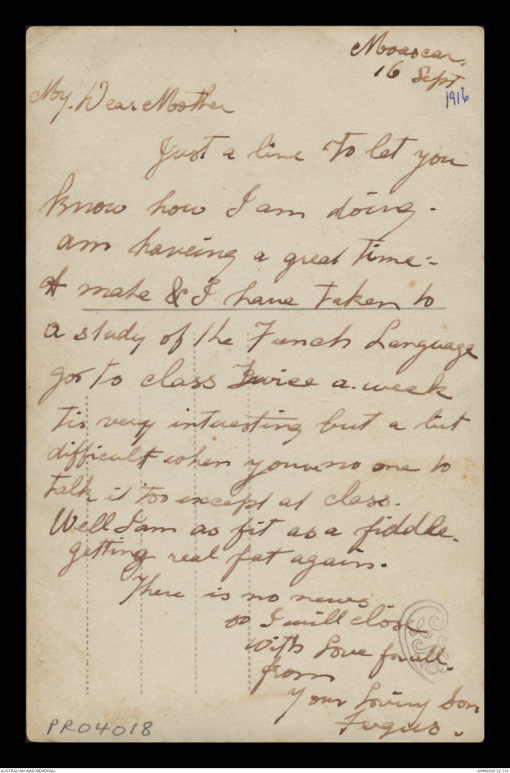 Moascar,
16 Sept
1916
My. Dear Mother
Just a line to let you
know how I am doing.
am haveing a great time:-
A mate & I have taken to
a study of the French Language
go to class Twice a. week
tis very interesting but a bit
difficult when youve no one to
talk it too except at class.
Well I am as fit as a fiddle.
getting real fat again.
There is no news
so I will close
with Love for all.
from
Your Loving Son
Fergus.
PR04018
AUSTRALIAN WAR MEMORIAL